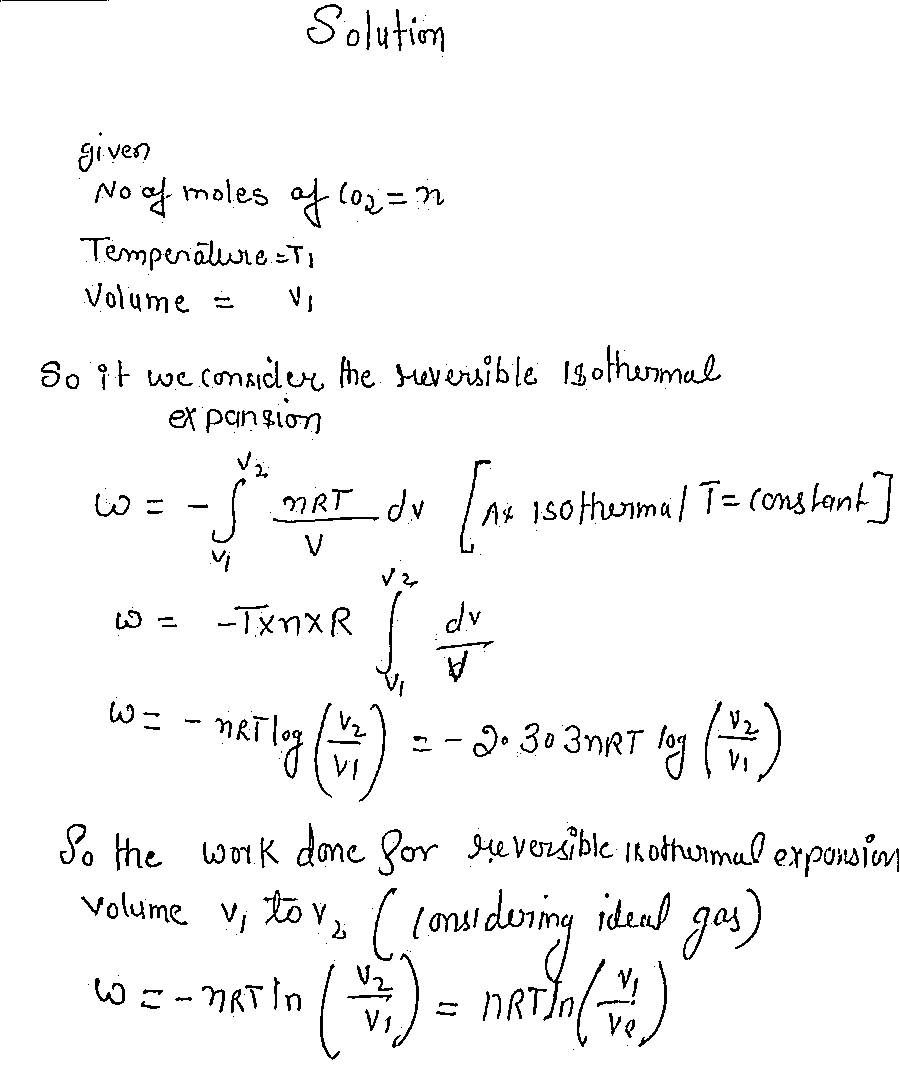 Solution
given
No of moles of CO2 = n
Temperature = T1
Volume = V1
So if we consider the reversible Isothermal
expansion
w = - ∫_{V1}^{V2} nRT/V dv [As isothermal T = constant]
w = -T×n×R ∫_{V1}^{V2} dv/V
w = - nRT log (V2/V1) = - 2.303nRT log (V2/V1)
So the work done for reversible isothermal expansion
volume V1 to V2 (considering ideal gas)
w = - nRT ln (V2/V1) = nRT ln (V1/V2)